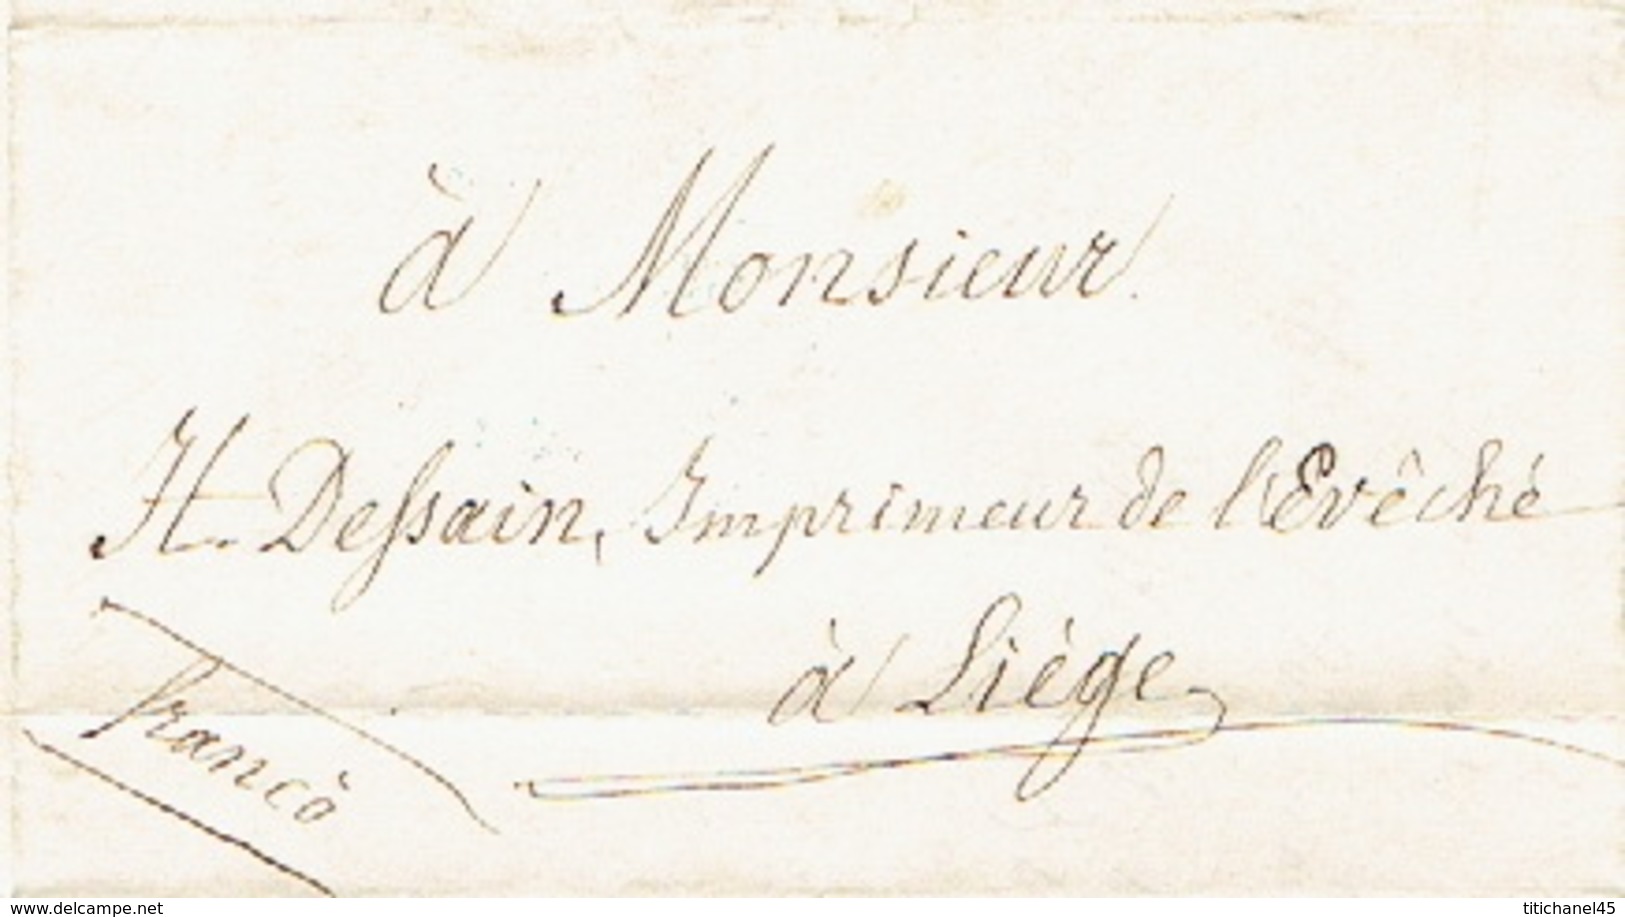 à Monsieur.
H. Deſsain, Imprimeur de l'Evêché
à Liége
francò
www.delcampe.net
titichanel45